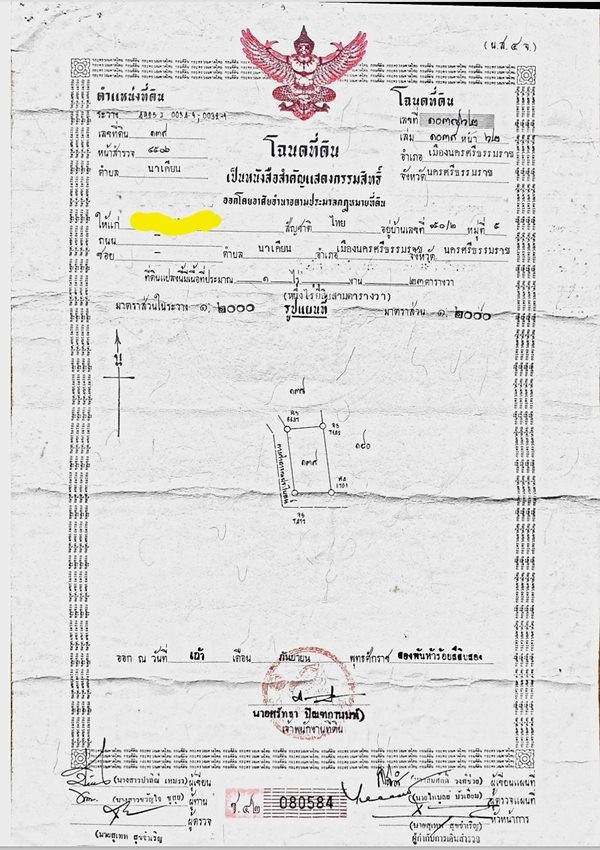 (น.ส.๔ จ.)
ตำแหน่งที่ดิน
ระวาง
เลขที่ดิน ๑๓๙
หน้าสำรวจ
ตำบล นาเคียน
โฉนดที่ดิน
เลขที่ ๑๐๓๗๖๒
เล่ม ๑๐๓๘ หน้า ๖๒
อำเภอ เมืองนครศรีธรรมราช
จังหวัด นครศรีธรรมราช
โฉนดที่ดิน
เป็นหนังสือสำคัญแสดงกรรมสิทธิ์
ออกโดยอาศัยอำนาจตามประมวลกฎหมายที่ดิน
ให้แก่ สัญชาติ ไทย อยู่บ้านเลขที่ ๙๐/๒ หมู่ที่ ๕
ถนน –
ซอย – ตำบล นาเคียน อำเภอ เมืองนครศรีธรรมราช จังหวัด นครศรีธรรมราช
ที่ดินแปลงนี้มีเนื้อที่ประมาณ ๑ ไร่ – งาน ๒๓ ตารางวา
(หนึ่งไร่ยี่สิบสามตารางวา)
มาตราส่วนในระวาง ๑: ๒๐๐๐ รูปแผนที่ มาตราส่วน ๑: ๒๐๐๐
น
๑๓๗
๑๔๐
๑๓๙
ออก ณ วันที่ เก้า เดือน กันยายน พุทธศักราช สองพันห้าร้อยสี่สิบสอง
เจ้าพนักงานที่ดิน
ผู้เขียน
ผู้ทาน
ผู้ตรวจ
(นายสุเทพ สุขจำเริญ)
ช.๔๒ 080584
ผู้เขียนแผนที่
ผู้ตรวจแผนที่
หัวหน้าการ
(นายสุเทพ สุขจำเริญ)
ผู้กำกับการเดินสำรวจ